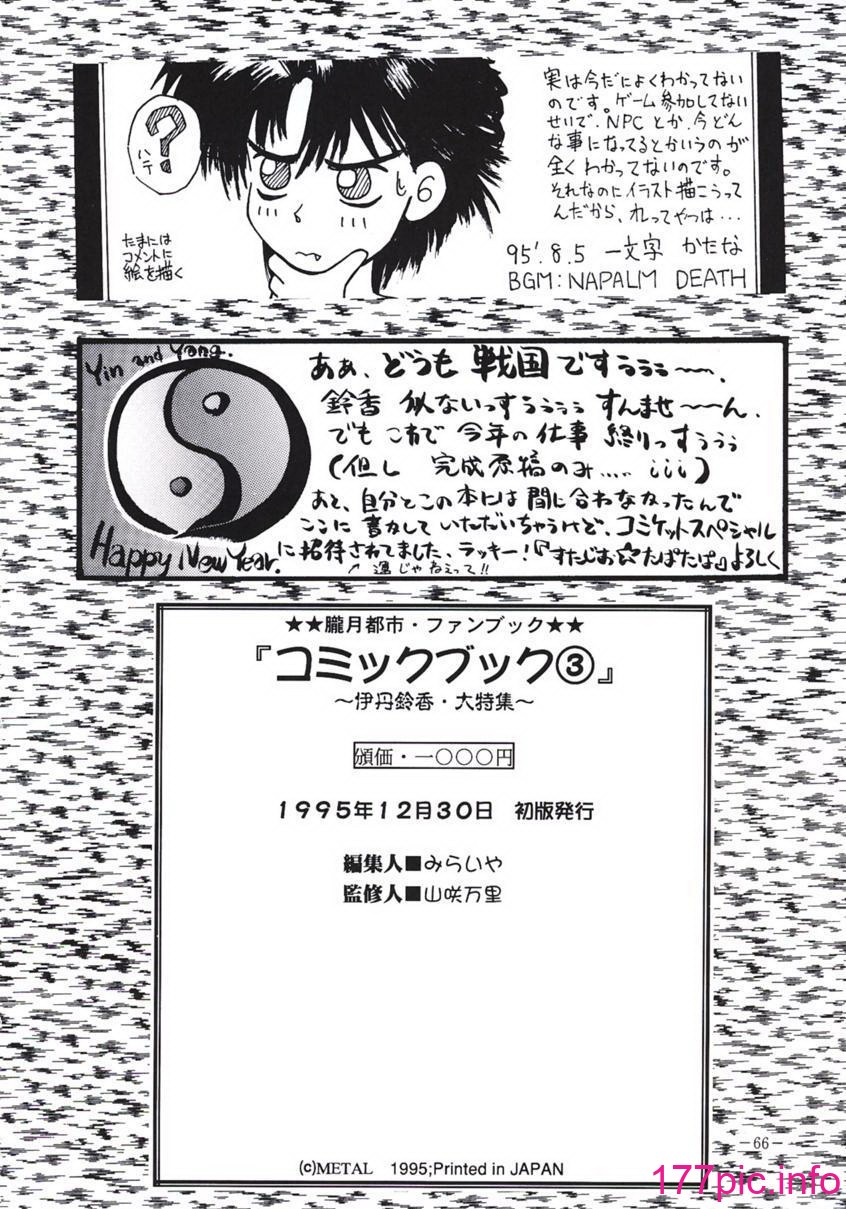 実は今だによくわかってない
のです。ゲーム参加してない
せいで、NPCとか、今どん
な事になってるとかいうのが
全くわかってないのです。
それなのにイラスト描こうって
んだから、れってやつは…
?
ハテ
たまには
コメントに
絵を描く
95'.8.5 一文字 かたな
BGM:NAPALM DEATH
Yin and Yang.
ああ、どうも 戦国ですぅぅぅ〜〜、
鈴香 似ないっすぅぅぅぅ すんませ〜〜ん、
でも これで 今年の仕事 終りっすぅぅぅ
(但し 完成原稿のみ.... iii)
あと、自分とこの本には間に合わなかったんで
ここに書かして いただいちゃうけど、コミケットスペシャル
に招待されてました、ラッキー!『すたじお☆たぱたぱ』よろしく
↗運じゃねぇって!!
Happy New Year.
★★朧月都市・ファンブック★★
『コミックブック③』
〜伊丹鈴香・大特集〜
頒価・一〇〇〇円
1995年12月30日 初版発行
編集人■みらいや
監修人■山咲万里
(c)METAL 1995;Printed in JAPAN
-66-
177pic.info